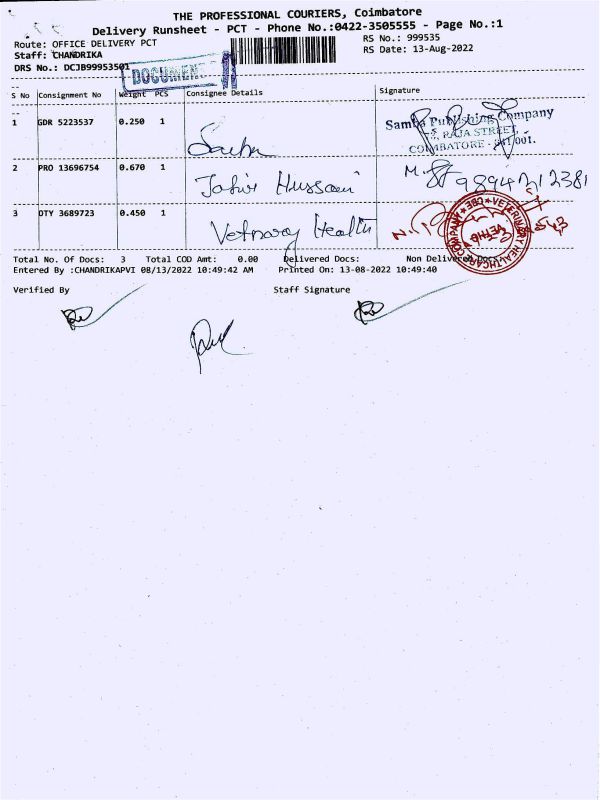 THE PROFESSIONAL COURIERS, Coimbatore
Delivery Runsheet - PCT - Phone No.:0422-3505555 - Page No.:1
Route: OFFICE DELIVERY PCT
RS No.: 999535
Staff: CHANDRIKA
RS Date: 13-Aug-2022
DRS No.: DCJB99953501
DOCUMENT
S No Consignment No Weight PCS Consignee Details Signature
1 GDR 5223537 0.250 1
Samba Publishing Company
RAJA STREET,
COIMBATORE - 641 001.
2 PRO 13696754 0.670 1 Hussain
3 DTY 3689723 0.450 1 Vetnary Health
VETERINARY HEALTHCARE COMPANY CBE
Total No. Of Docs: 3 Total COD Amt: 0.00 Delivered Docs: Non Delivered Docs:
Entered By :CHANDRIKAPVI 08/13/2022 10:49:42 AM Printed On: 13-08-2022 10:49:40
Verified By Staff Signature